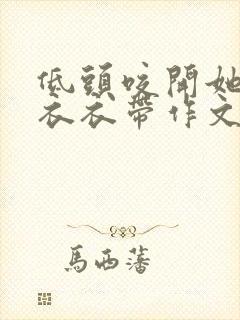 低頭咬開她
衣衣帶作文
馬西藩